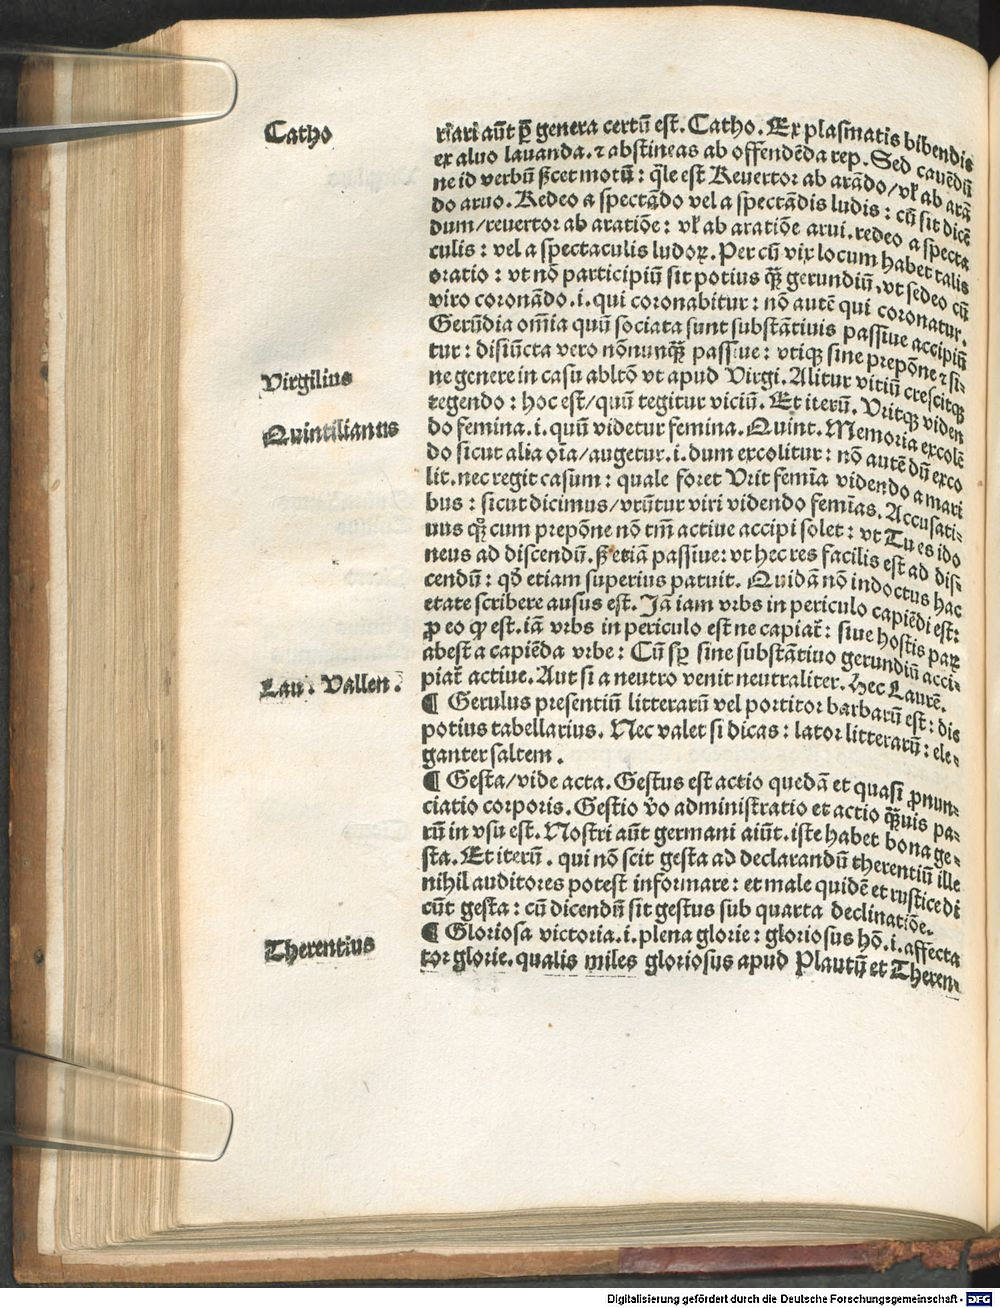 Catho
riari aūt p̄ genera certū est. Catho. Ex plasmatis bibendis
ex aluo lauanda. ⁊ abstineas ab offendēda rep. Sed cauēdū
ne id verbū ꝓcet motū: q̄le est Reuertor ab arādo/vl̄ ab arā
do aruo. Redeo a spectādo vel a spectādis ludis: cū sit dicē
dum/reuertor ab aratiōe: vl̄ ab aratiōe arui. redeo a specta
culis: vel a spectaculis ludoꝝ. Per cū vix locum habet talis
oratio: vt nō participiū sit potius q̄ꝫ gerundiū. vt sedeo cū
viro coronādo .i. qui coronabitur: nō autē qui coronatur.
Gerūdia om̄ia quū sociata sunt substātiuis passiue accipiū
tur: disiūcta vero nōnunq̄ꝫ passiue: vtiqꝫ sine prepōne ⁊ si-
Virgilius
ne genere in casu abltō vt apud Virgi. Alitur vitiū crescitqꝫ
tegendo: hoc est/quū tegitur viciū. Et iterū. Vritqꝫ viden
Quintilianus
do femina .i. quū videtur femina. Quint. Memoria excolē
do sicut alia oīa/augetur .i. dum excolitur: nō autē dū exco
lit. nec regit casum: quale foret Vrit femīa videndo a mari
bus: sicut dicimus/vrūtur viri videndo femīas. Accusati-
uus q̄ꝫ cum prepōne nō tm̄ actiue accipi solet: vt Tu es ido
neus ad discendū. sꝫ etiā passiue: vt hec res facilis est ad dis-
cendū: qd̄ etiam superius patuit. Quidā nō indoctus hac
etate scribere ausus est. Iā iam vrbs in periculo capiēdi est:
ꝓ eo qꝫ est. iā vrbs in periculo est ne capiat̄: siue hostis paꝝ
abest a capiēda vrbe: Cū sꝑ sine substātiuo gerundiū acci-
Lau. Vallen.
piat̄ actiue. Aut si a neutro venit neutraliter. Hec Laurē.
¶ Gerulus presentiū litterarū vel portitor barbarū est: dic
potius tabellarius. Nec valet si dicas: lator litterarū: ele-
ganter saltem.
¶ Gesta/vide acta. Gestus est actio quedā et quasi ꝓnun-
ciatio corporis. Gestio v̄o administratio et actio q̄ꝫuis pa-
rū in vsu est. Nostri aūt germani aiūt. iste habet bona ge-
sta. Et iterū. qui nō scit gesta ad declarandū therentiū ille
nihil auditores potest informare: et male quidē et rustice di
cūt gesta: cū dicendū sit gestus sub quarta declinatiōe.
¶ Gloriosa victoria .i. plena glorie: gloriosus hō .i. affecta
Therentius
tor glorie. qualis miles gloriosus apud Plautū et Theren-
Digitalisierung gefördert durch die Deutsche Forschungsgemeinschaft - DFG